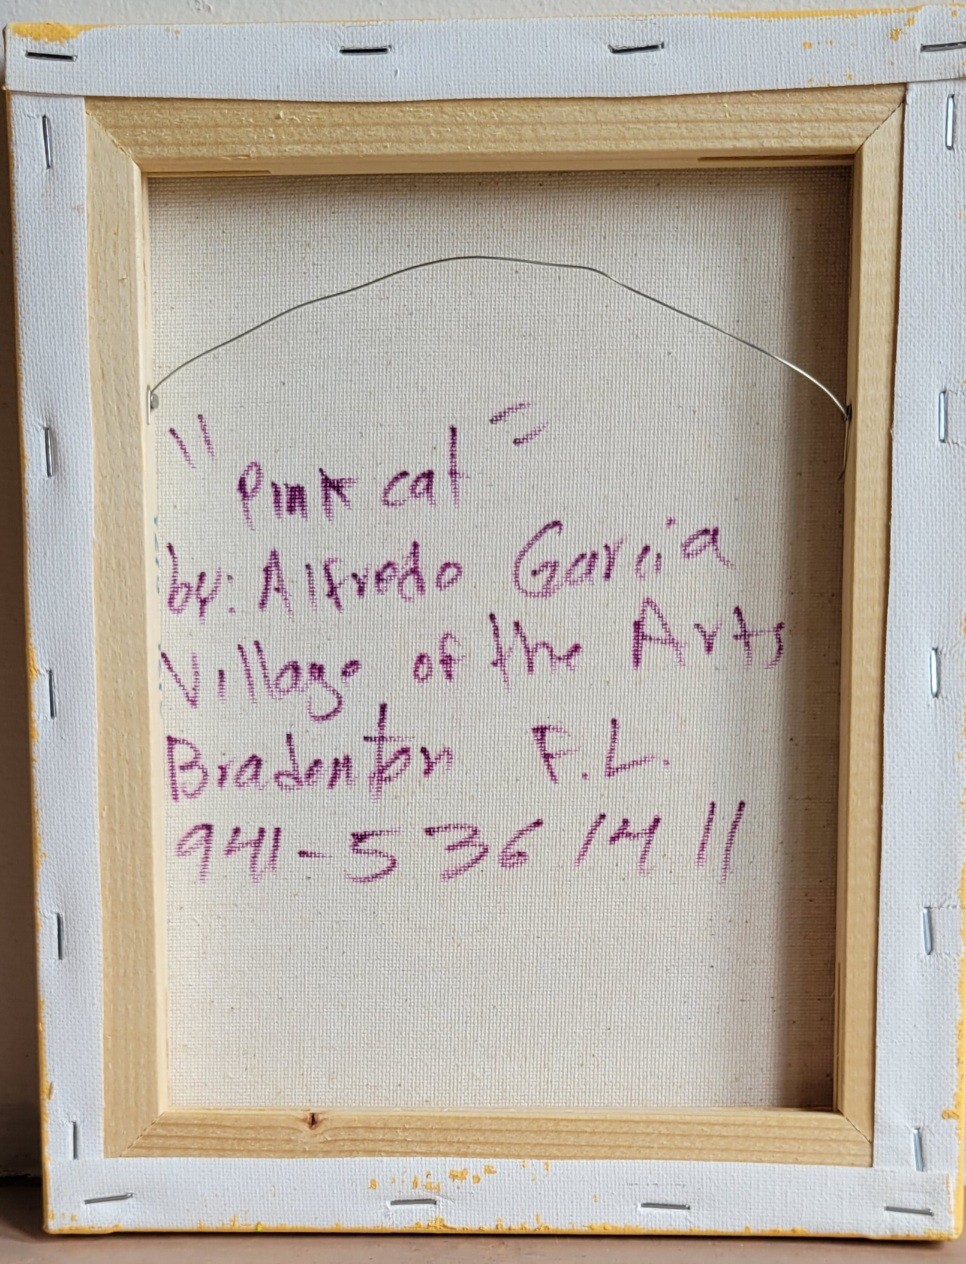 "Pink cat"
by: Alfredo Garcia
Village of the Arts
Bradenton F.L.
941-536 1411